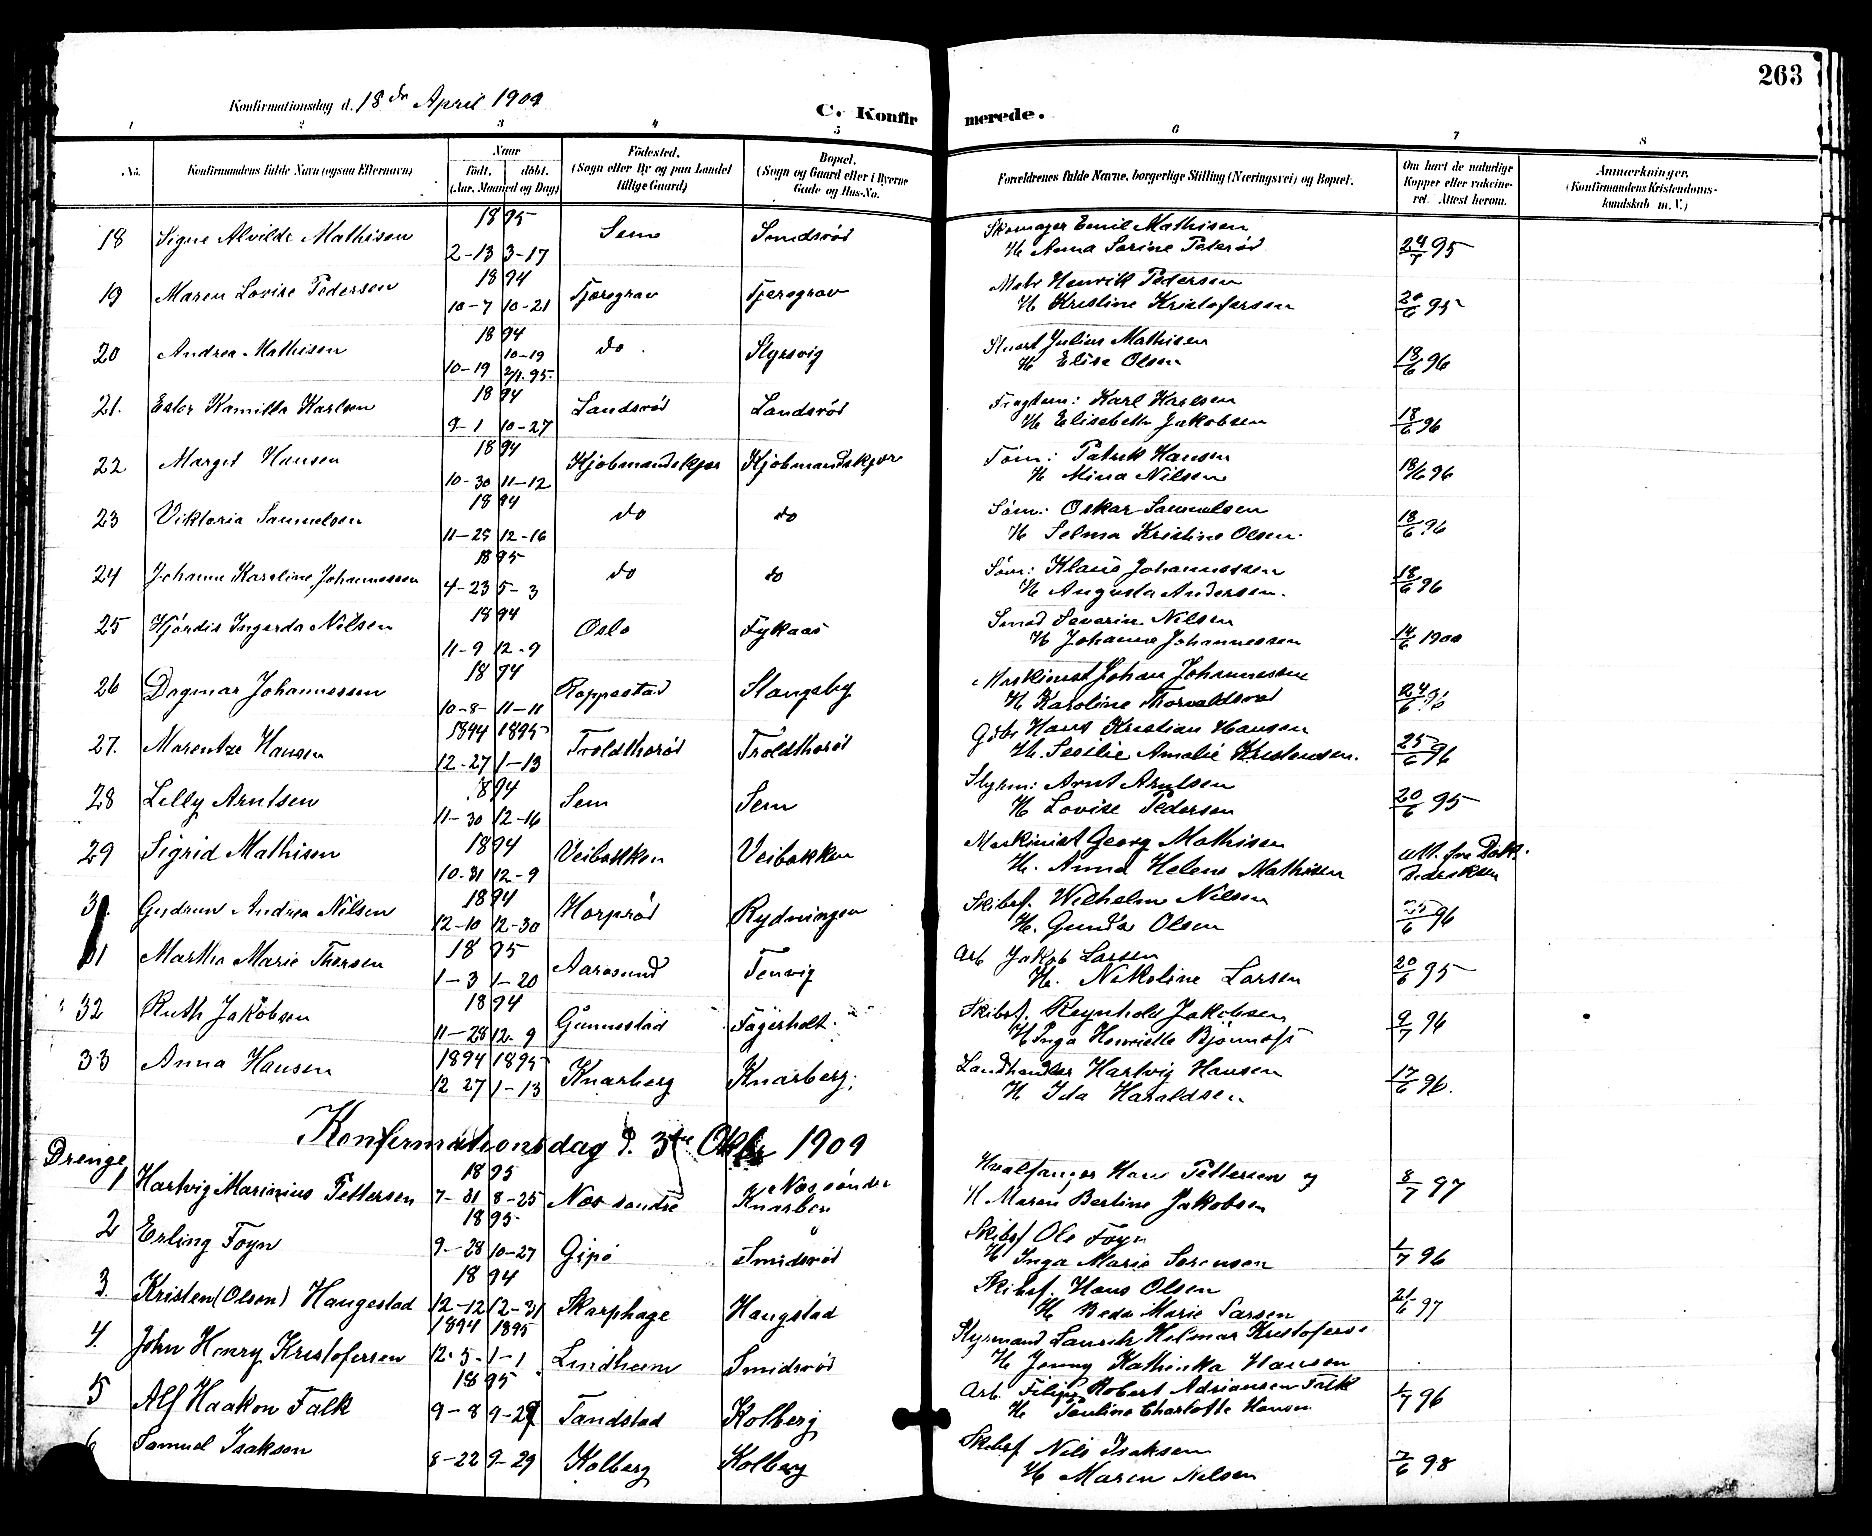 263
Konfirmationsdag d. 18de April 1909
C. Konfirmerede.
1 2 3 4 5 6 7 8
No.
Konfirmandens fulde Navn (ogsaa Efternavn)
Naar
født, døbt.
(Aar, Maaned og Dag)
Fødested.
(Sogn eller By og paa Landet
tillige Gaard)
Bopæl.
(Sogn og Gaard eller i Byerne
Gade og Hus-No.
Forældrenes fulde Navne, borgerlige Stilling (Næringsvei) og Bopæl.
Om havt de naturlige
Kopper eller vaksine-
ret. Attest herom.
Anmærkninger.
(Konfirmandens Kristendoms-
kundskab m. V.)
18 Signe Alvilde Mathisen 1895 2-13 3-17 Sem Smidsrød Skomager Emil Mathisen
H Anna Sorine Peterød 24/7 95
19 Maren Lovise Pedersen 1894 10-7 10-21 Tjøregrav Tjøregrav Matr Henrik Pedersen
H Kristine Kristofersen 20/6 95
20 Andrea Mathisen 1894 10-19 10-19 2/1.95. do. Styrsvig Stuert Julius Mathisen
H Elise Olsen 18/6 96
21. Ester Kamilla Karlsen 1894 9-1 10-27 Landsrød Landsrød Karl Karlsen
H Elisabeth Jakobsen 18/6 96
22 Margit Hansen 1894 10-30 11-12 Kjøbmandskjær Kjøbmandskjær Tøm: Patrik Hansen
H Mina Nilsen 18/6 96
23 Viktoria Samuelsen 1894 11-25 12-16 do do Tøm: Oskar Samuelsen
H Selma Kristine Olsen. 18/6 96
24 Johanne Karoline Johannessen 1895 4-23 5-3 do do Tøm: Klaus Johannessen
H Augusta Andersen. 18/6 96
25 Hjørdis Ingarda Nilsen 1894 11-9 12-9 Oslo Fykaas Smed Severin Nilsen
H Johanne Johannessen 14/6 1900
26 Dagmar Johannessen 1894 10-8 11-11 Roppestad Slangsby Maskinist Johan Johannessen
H Karoline Torvaldsen 24/6 96
27. Marentze Hansen 1894 1895 12-27 1-13 Troldthorød Troldthorød Gdbr Hans Kristian Hansen
H. Sesilie Amalie Kristensen. 25/6 96
28 Lilly Arntsen 1894 11-30 12-16 Sem Sem Styrm: Arnt Arntsen
H Lovise Pedersen 20/6 95
29 Sigrid Mathisen 1894 10-31 12-9 Veibakken Veibakken Maskinist Georg Mathisen
H. Anna Helene Mathisen att. fra Dokt.
30. Gudrun Andrea Nilsen 1894 12-10 12-30 Horprød Rydningen Skibsf. Wilhelm Nilsen
H. Gunda Olsen 25/6 96
31 Martha Marie Thorsen 1895 1-3 1-20 Aarøsund Tenvig Arb Jakob Larsen
H. Nikoline Larsen 20/6 95
32 Ruth Jakobsen 1894 11-28 12-9 Gunnestad Fagerholt Skibsf. Reynholt Jakobsen
H Inga Henriette 9/7 96
33 Anna Hansen 1894 1895 12 27 1-13 Knarberg Knarberg. Landhandler Hartvig Hansen
H Ida Haraldsen 17/6 96.
Konfirmationsdag d. 3die Oktbr 1909
Drenge
1 Hartvig Marinius Pettersen 1895 7-31 8-25 Nøs søndre Nøs søndre
Knarberg Hvalfanger Hans Pettersen og
H Maren Bertine Jakobsen 8/7 97
2 Erling Foyn 1895 9-28 10-27 Gipø Smidsrød Skibsf Ole Foyn
H Inga Marie Sørensen 1/7 96
3. Kristen (Olsen) Haugestad 1894 12-12 12-31 Skarphage Haugstad Skibsf. Hans Olsen
H Beda Marie Larsen 21/6 97
4. John Henry Kristofersen 1894 1895 12-5 1-1 Lindheim Smidsrød Styrmand Laurits Hilmar Kristofersen
H Jenny Kathinka Hansen
5 Alf Haakon Falk 1895 9-8 9-29 Tandstad Kolberg Arb. Filip Robert Adriansen Falk
H Pauline Charlotte Hansen 1/7 96
6 Samuel Isaksen 8-22 9-29 Kolberg Kolberg Skibsf Nils Isaksen
H Maren Nilsen 7/6 98